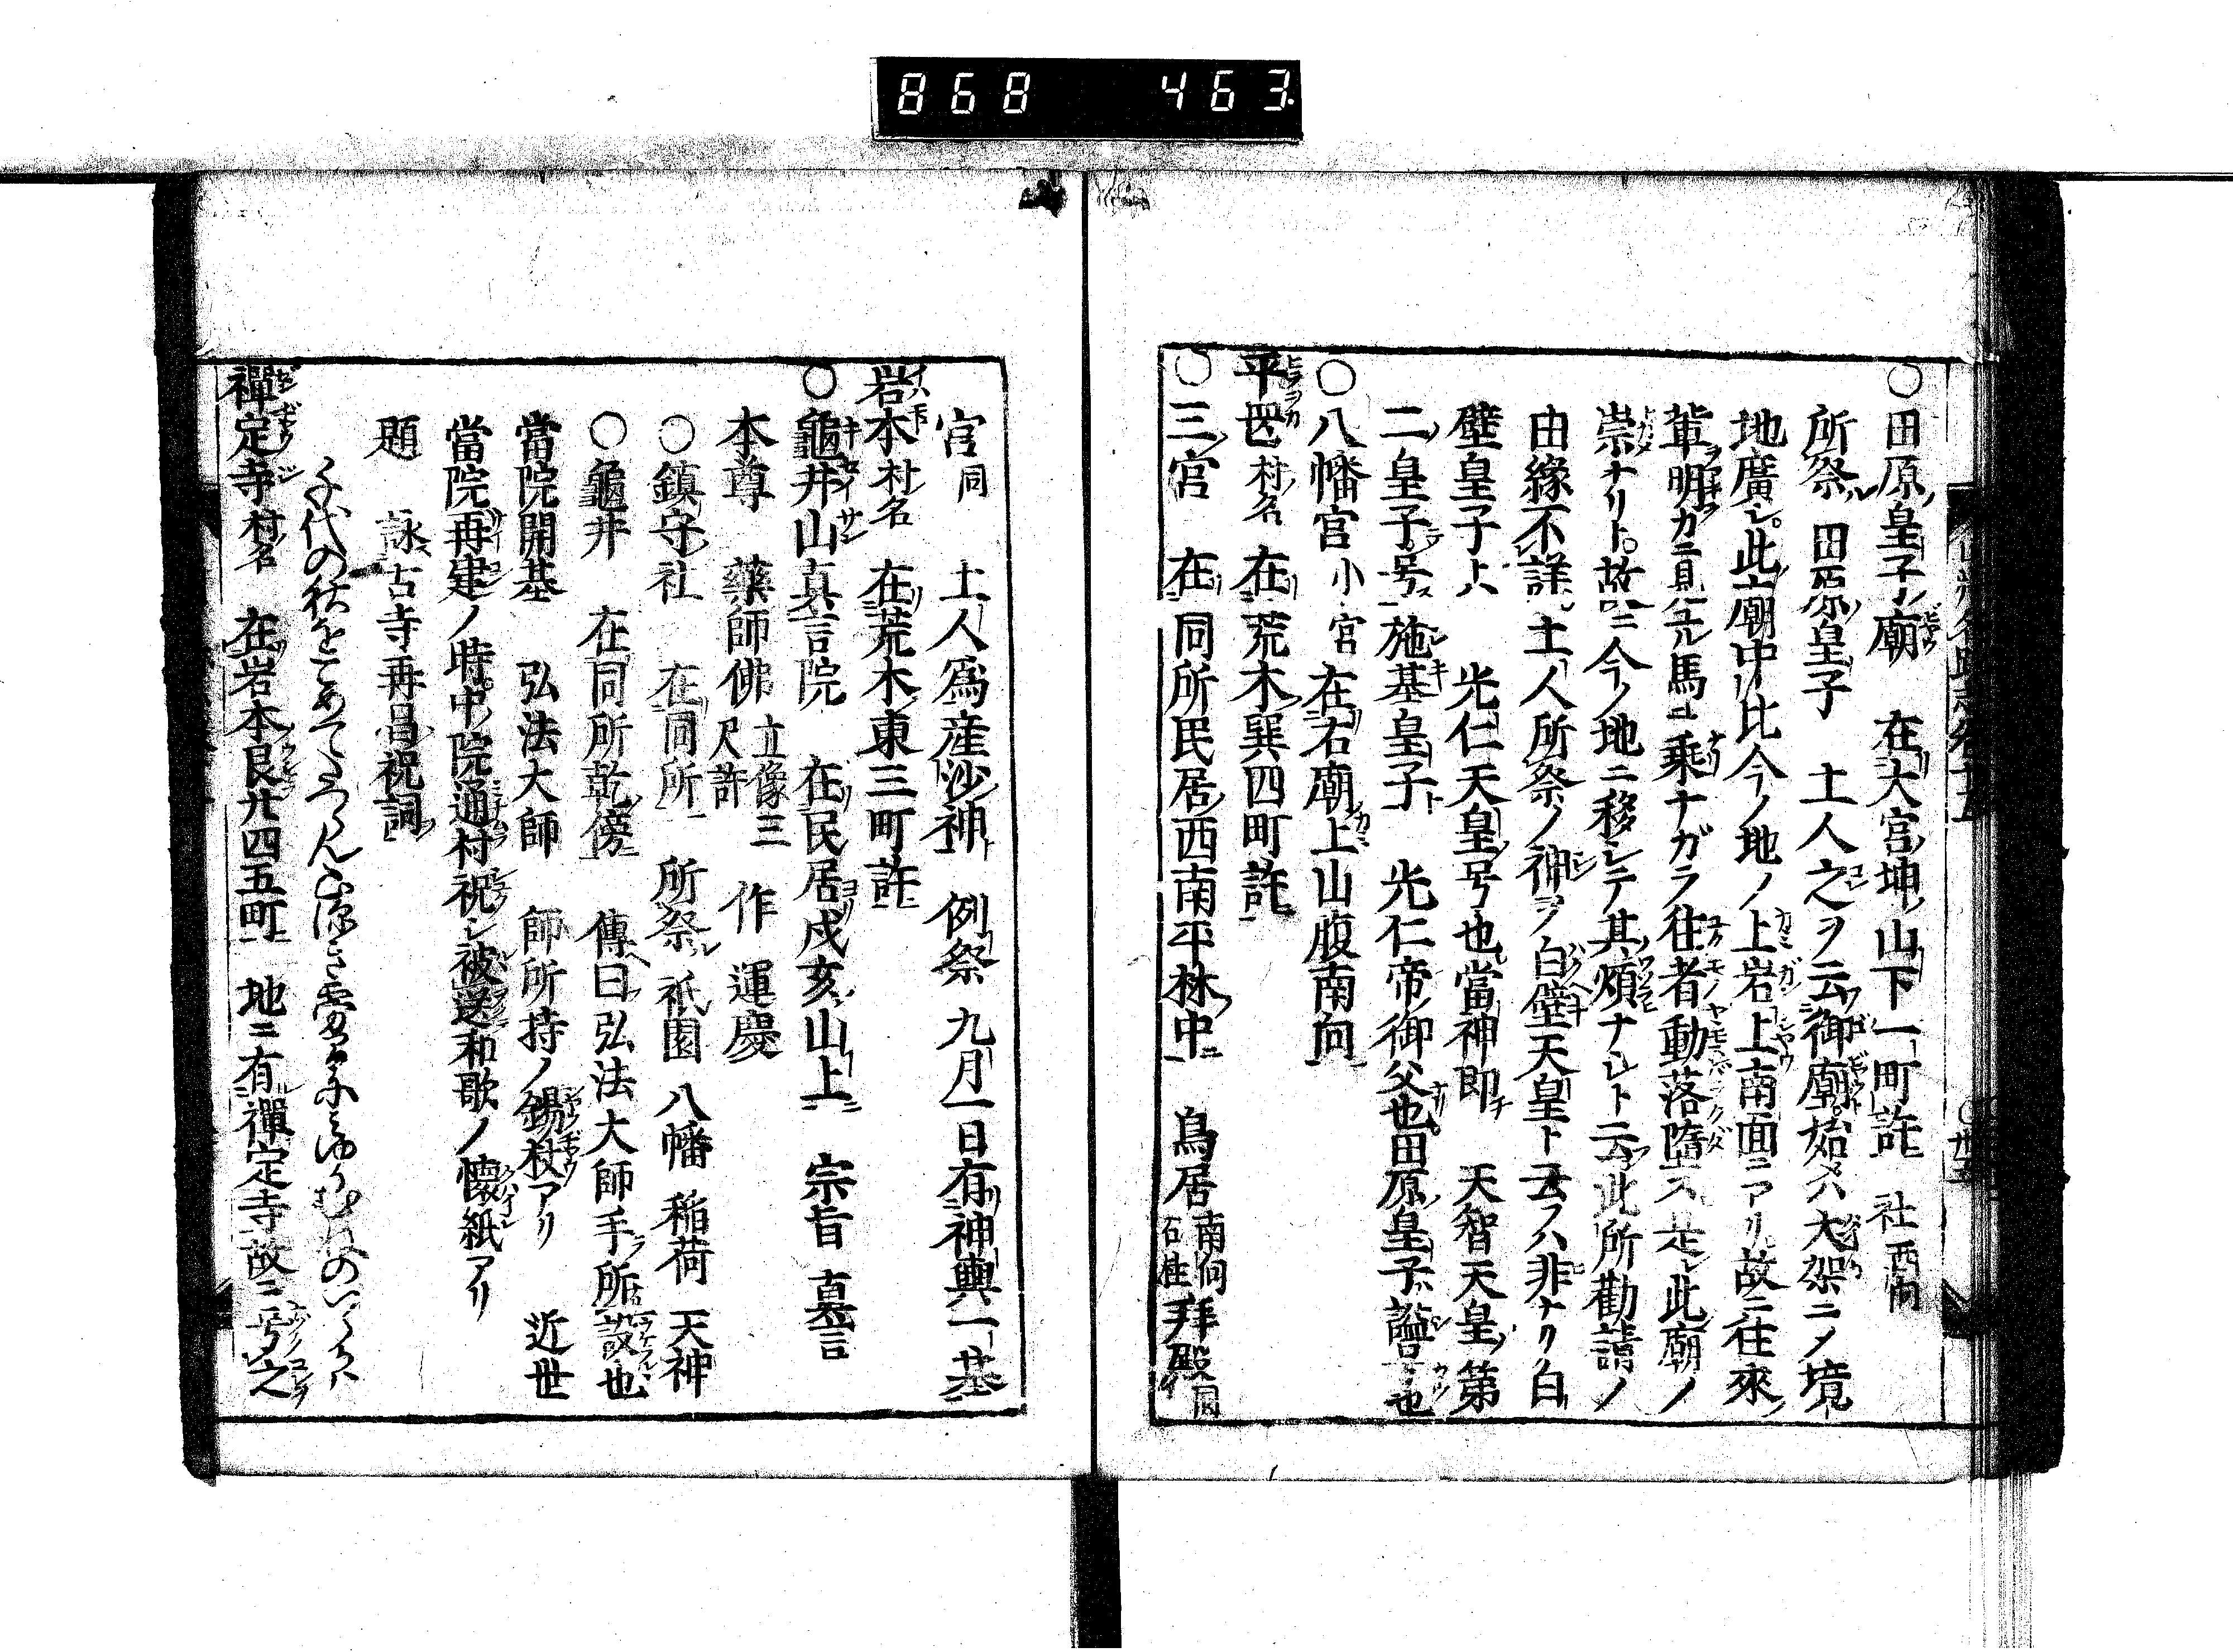 868 463
○田原皇子ノ廟 在大宮坤ノ山下一町許 社西向
所祭 田原皇子 土人之ヲ云御廟始メハ大架ニノ境
地廣シ此廟中比今ノ地ノ上岩上南面ニアリ故ニ往來ノ
輩明カニ見ユル馬ニ乗ナガラ往者動落墮ス是レ此廟ノ
崇ナリト故ニ今ノ地ニ移シテ其煩ナシト云此所勸請ノ
由緣不詳土人所祭ノ神ヲ白壁天皇ト云フハ非ナリ白
壁皇子ハ 光仁天皇ノ号也當神即チ 天智天皇ノ第
二皇子号施基皇子ト 光仁帝ノ御父也田原皇子ハ謚也
○八幡宮小宮 在右廟ノ上山腹南向
平岡村名 在荒木巽四町許
○三ノ宮 在同所民居西南平林中 鳥居南向石柱拜殿同
宮同 土人爲産沙神 例祭九月一日有神輿一基
岩本村名 在荒木東三町許
○龜井山真言院 在民居戌亥山上 宗旨真言
本尊 藥師佛立像三尺許 作運慶
○鎮守社 在同所 所祭祇園八幡稲荷天神
○龜井 在同所乾傍 傳曰弘法大師手ラ所設也
當院開基 弘法大師 師所持ノ錫杖アリ 近世
當院再建ノ時中院通村祝シ被送和歌ノ懐紙アリ
題 詠古寺再昌祝詞
千代の秋をこめて
禪定寺村名 在岩本艮廿四五町 地ニ有禪定寺故ニ号之